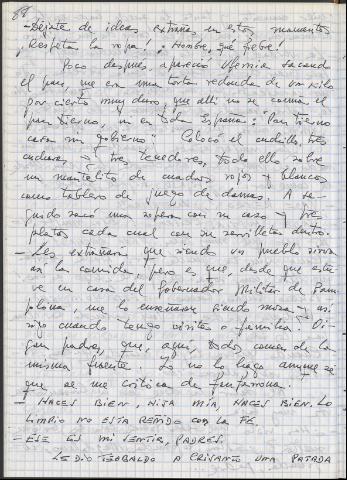 88
- Déjate de ideas extrañas en estos momentos
¡Respeta la ropa! ¡Hombre, qué fiebre!
Poco después apareció Ufemia sacando
el pan, que era una torta redonda de un kilo
por cierto muy duro, que allí no se comía el
pan tierno, ni en toda España: "Pan tierno
casa sin gobierno". Colocó el cuchillo, tres
cucharas y tres tenedores, todo ello sobre
un mantelito de cuadros rojos y blancos
como tablero de juego de damas. A se-
guido sacó una sopera con su cazo y tres
platos cada cual con su servilleta dentro.
- Les extrañará que siendo un pueblo sirva
así la comida, pero es que, desde que estu-
ve en casa del Gobernador Militar de Pam-
plona, me lo enseñaron siendo moza y así
sigo cuando tengo visitas o familia. Di-
gan padres, que, aquí, todos comen de la
misma fuente. Yo no lo hago aunque sé
que se me critica de fanfarrona.
- HACES BIEN, HIJA MÍA, HACES BIEN. LO
LIMPIO NO ESTA REÑIDO CON LA FE.
- ESE ES MI SENTIR, PADRES.
LE DIO TEOBALDO A CRISANTO UNA PATADA